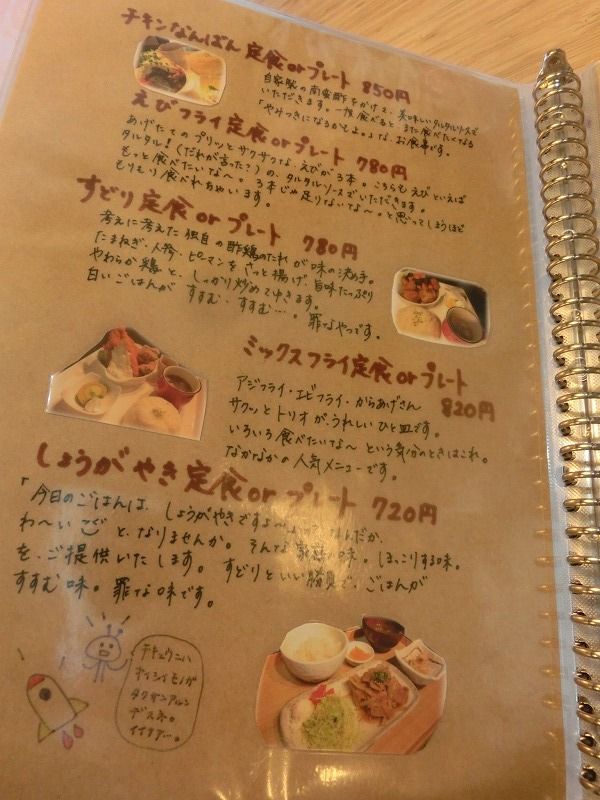 チキンなんばん 定食orプレート 850円
自家製の南蛮酢をかけて、美味しいタルタルソースで
いただきます。一度食べると、また食べたくなる
「やみつきになるかもよ。」な、お食事です。
えびフライ定食orプレート 780円
あげたての プリッとサクサクな、えびが3本。こちらもえびといえば
タルタル!(だれが言った?)の、タルタルソースでいただきます。
もっと食べたいな〜。3本じゃ足りないな〜。と思ってしまうほど
もりもり食べれちゃいます。
すどり定食orプレート 780円
考えに考えた独自の酢鶏のたれが味の決め手。
たまねぎ、人参、ピーマンをさっと揚げ、旨味たっぷり
やわらか鶏と、しっかり炒めてゆきます。
白いごはんが すすむ、すすむ…。罪なやつです。
ミックスフライ定食orプレート
820円
アジフライ・エビフライ・からあげさん
サクッとトリオが、うれしいひと皿です。
いろいろ食べたいな〜という気分のときはこれ。
なかなかの人気メニューです。
しょうがやき定食orプレート 720円
「今日のごはんは、しょうがやきですよ〜」って なんだか、
わ〜い と、なりませんか。そんな家庭の味。ほっこりする味。
を、ご提供いたします。すどりといい勝負で、ごはんが
すすむ味。罪な味です。
チキュウニハ
オイシイモノガ
タクサンアルン
デスネ。
イイナア…。